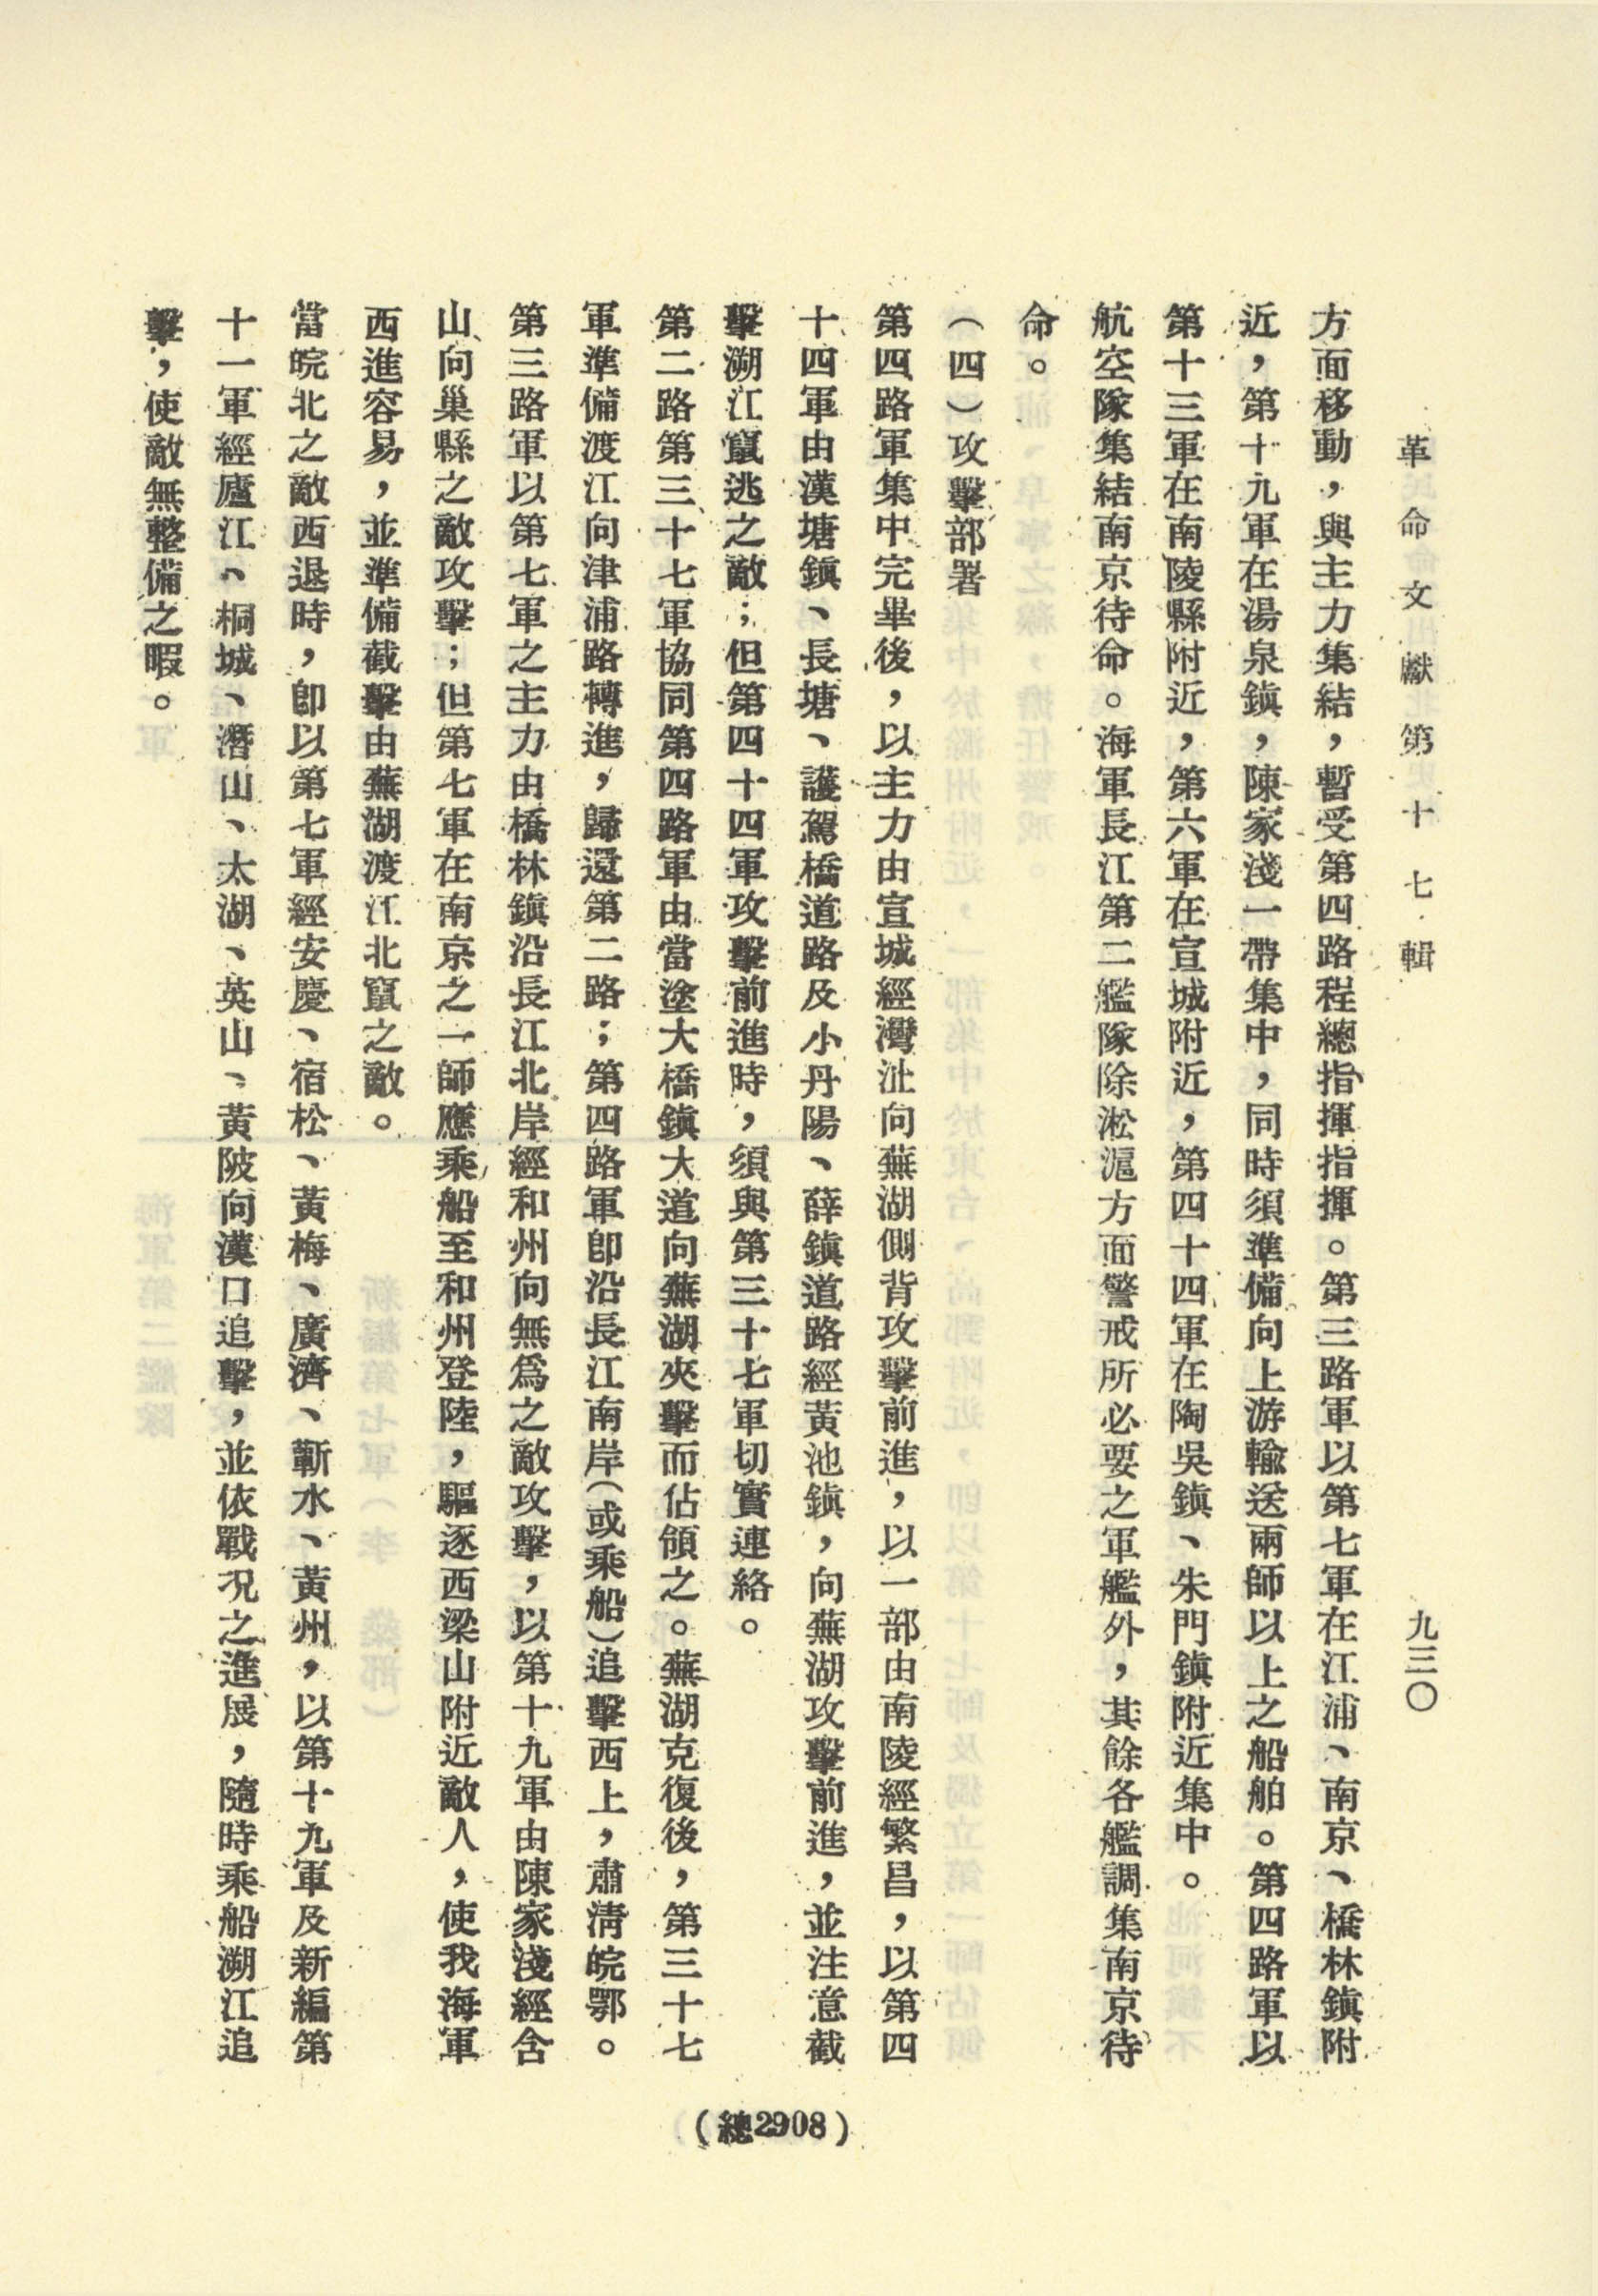 革命文獻第十七輯
九三〇
方面移動，與主力集結，暫受第四路程總指揮指揮。第三路軍以第七軍在江浦、南京、橋林鎮附
近，第十九軍在湯泉鎮，陳家淺一帶集中，同時須準備向上游輸送兩師以上之船舶。第四路軍以
第十三軍在南陵縣附近，第六軍在宣城附近，第四十四軍在陶吳鎮、朱門鎮附近集中。
航空隊集結南京待命。海軍長江第二艦隊除淞滬方面警戒所必要之軍艦外，其餘各艦調集南京待
命。
（四）攻擊部署
第四路軍集中完畢後，以主力由宣城經灣沚向蕪湖側背攻擊前進，以一部由南陵經繁昌，以第四
十四軍由漢塘鎮、長塘、護駕橋道路及小丹陽、薛鎮道路經黃池鎮，向蕪湖攻擊前進，並注意截
擊溯江竄逃之敵；但第四十四軍攻擊前進時，須與第三十七軍切實連絡。
第二路第三十七軍協同第四路軍由當塗大橋鎮大道向蕪湖夾擊而佔領之。蕪湖克復後，第三十七
軍準備渡江向津浦路轉進，歸還第二路；第四路軍卽沿長江南岸（或乘船）追擊西上，肅淸皖鄂。
第三路軍以第七軍之主力由橋林鎮沿長江北岸經和州向無爲之敵攻擊，以第十九軍由陳家淺經含
山向巢縣之敵攻擊；但第七軍在南京之一師應乘船至和州登陸，驅逐西梁山附近敵人，使我海軍
西進容易，並準備截擊由蕪湖渡江北竄之敵。
當皖北之敵西退時，卽以第七軍經安慶、宿松、黃梅、廣濟、蘄水、黃州，以第十九軍及新編第
十一軍經廬江、桐城、潛山、太湖、英山、黃陂向漢口追擊，並依戰況之進展，隨時乘船溯江追
擊，使敵無整備之暇。
（總2908）